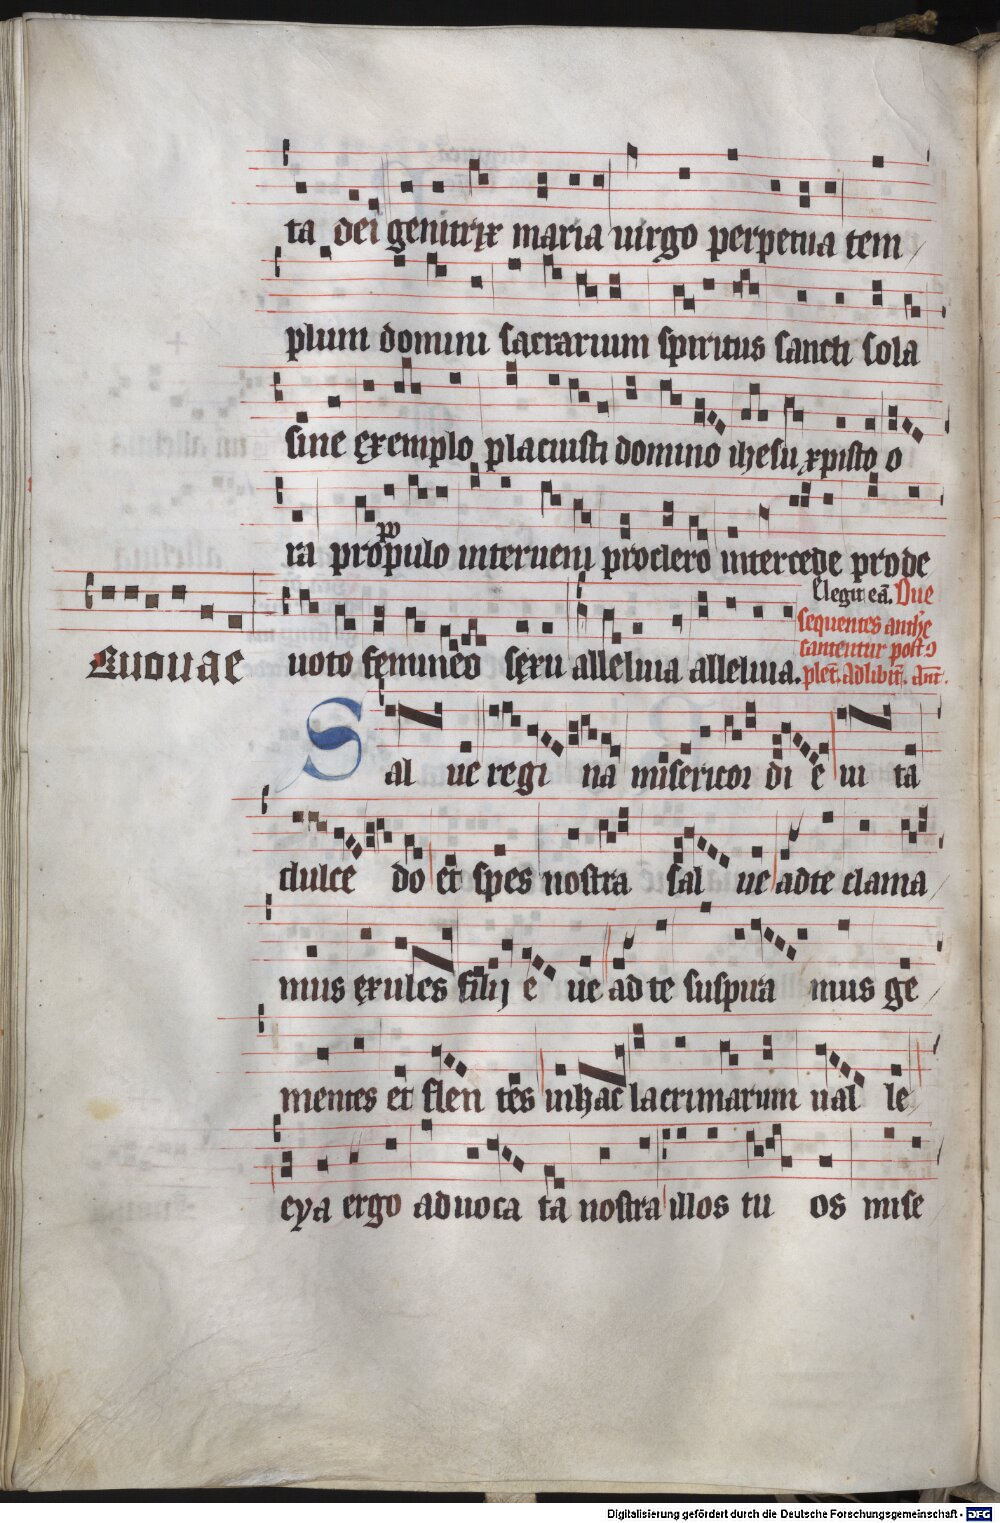 ta dei genitrix maria uirgo perpetua tem
plum domini sacrarium spiritus sancti sola
sine exemplo placuisti domino ihesu xpisto o
ra pro populo interueni pro clero intercede pro de
Elegit eā. Due
sequentes anthe
cantentur post 9
plet. ad libit. ant.
uoto femineo sexu alleluia alleluia.
Euouae
Sal ue regi na misericor di e ui ta
dulce do et spes nostra sal ue ad te clama
mus exules filij e ue ad te suspira mus ge
mentes et flen tes in hac lacrimarum ual le
eya ergo aduoca ta nostra illos tu os mise
Digitalisierung gefördert durch die Deutsche Forschungsgemeinschaft - DFG